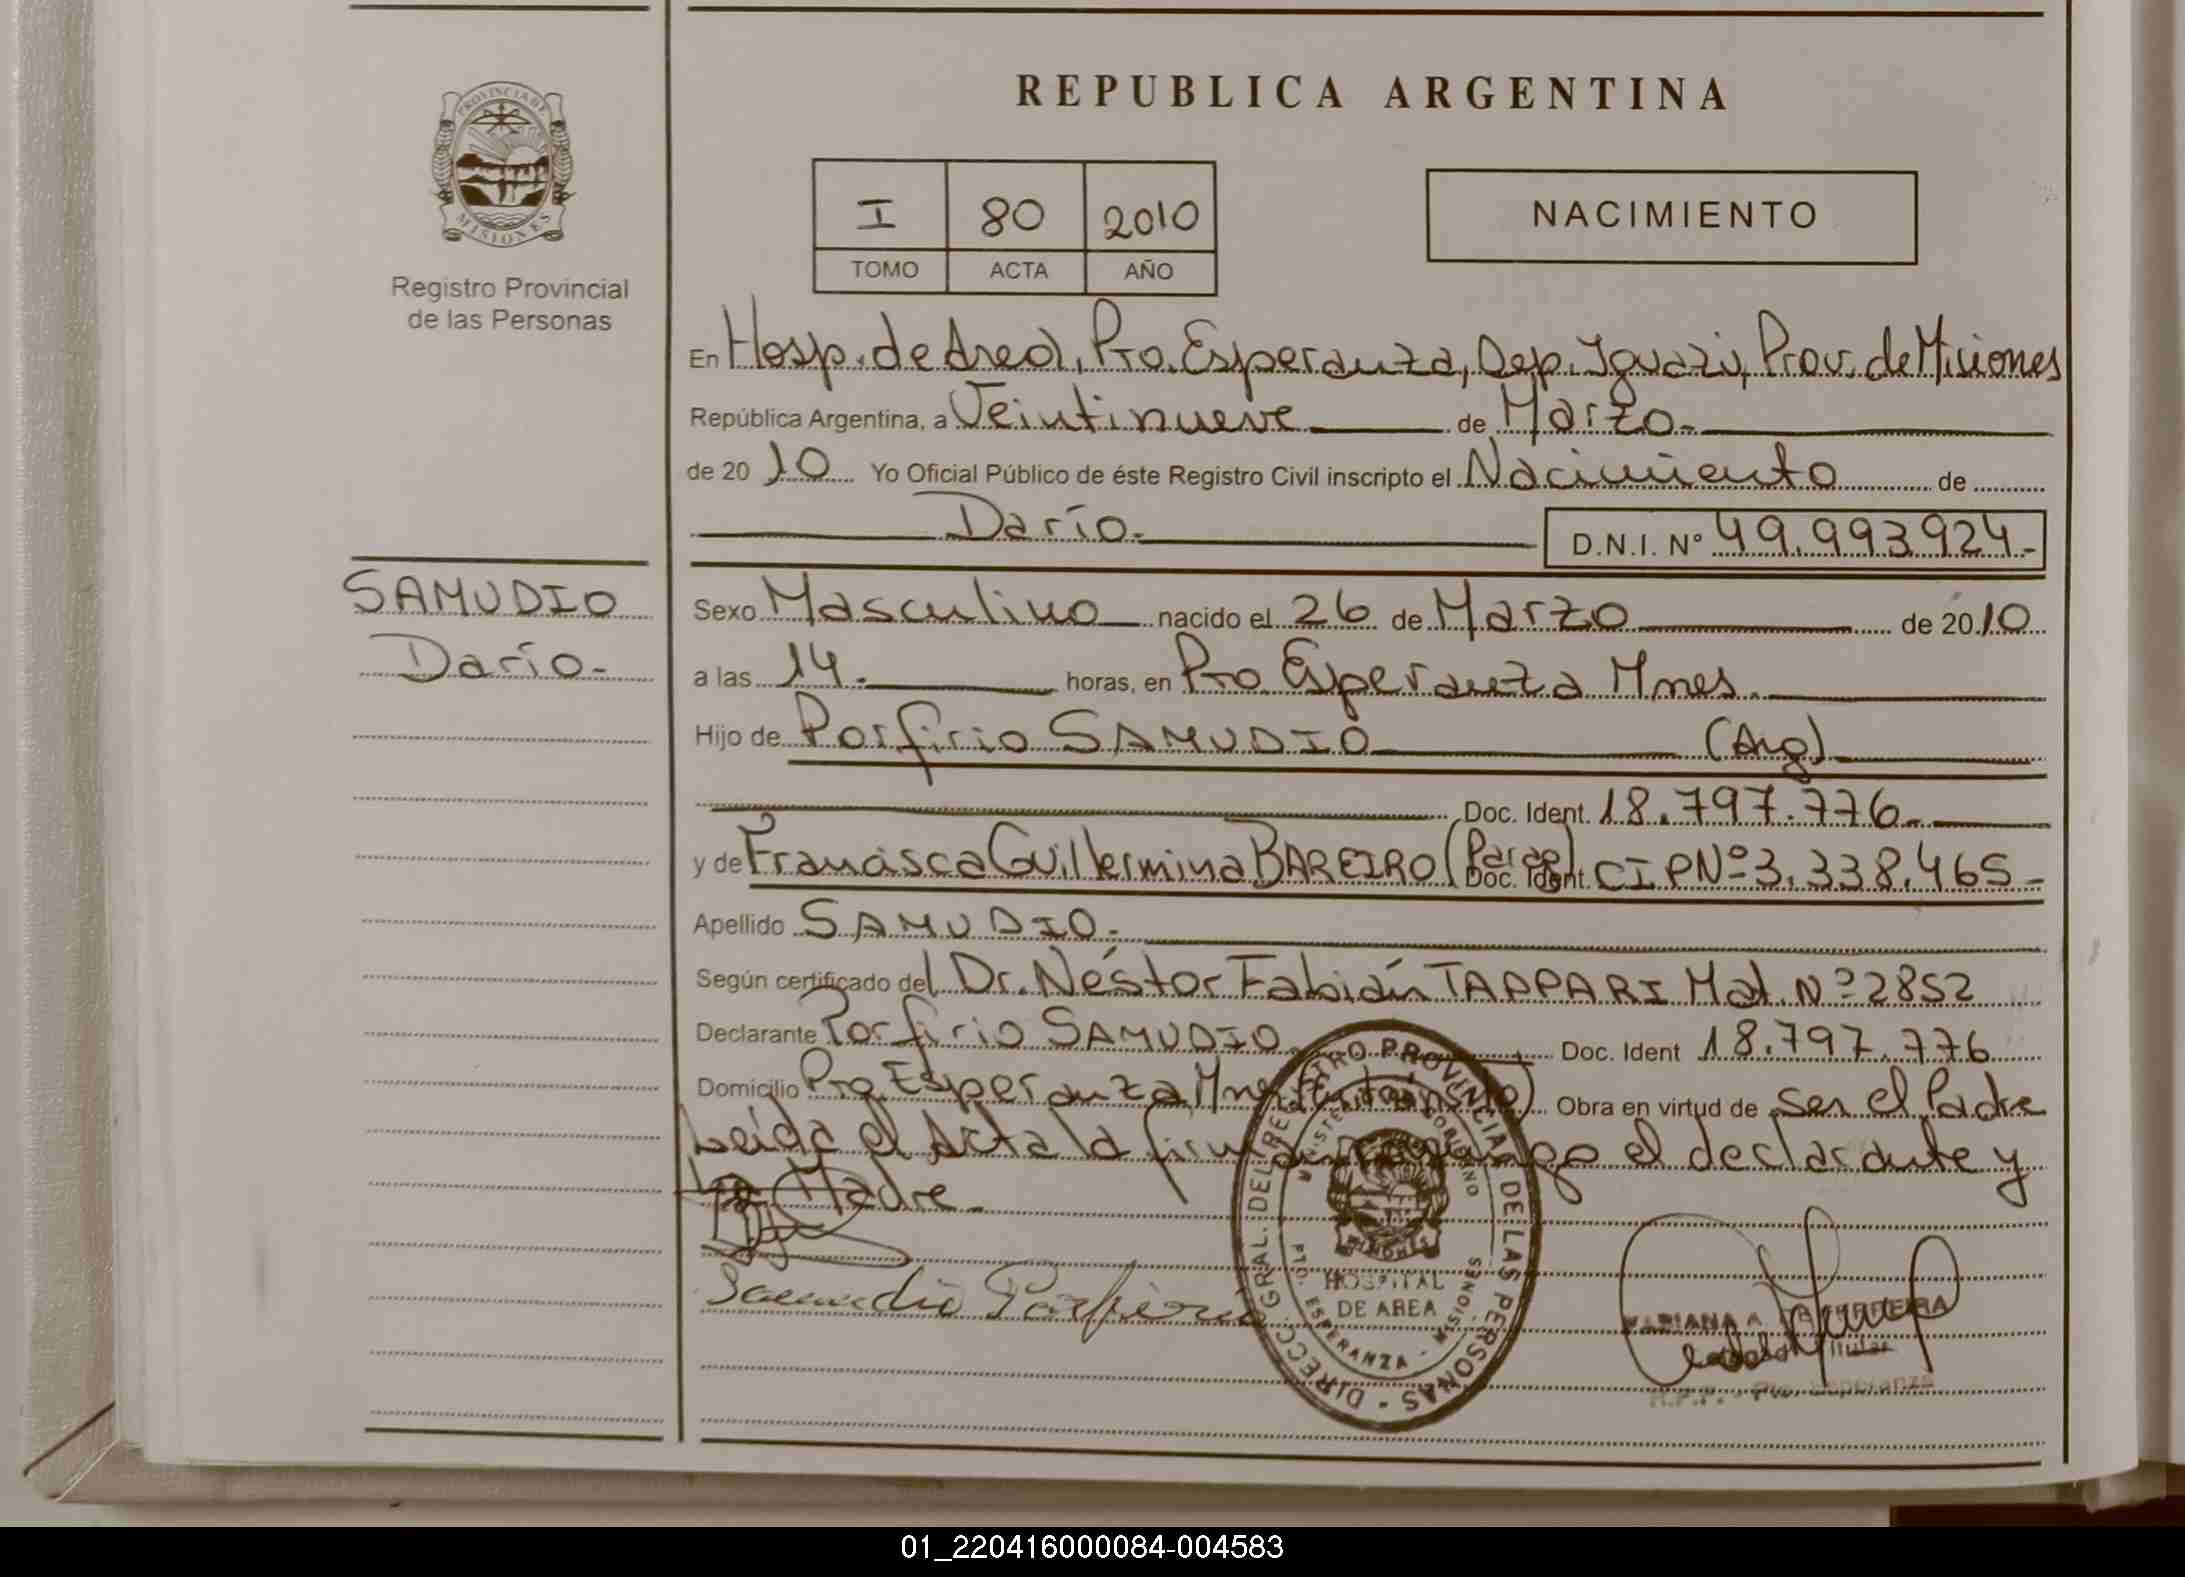 REPUBLICA ARGENTINA
PROVINCIA DE
MISIONES
Registro Provincial
de las Personas
I 80 2010
TOMO ACTA AÑO
NACIMIENTO
En Hosp. de Area, Pto. Esperanza, Dep. Iguazú, Prov. de Misiones
República Argentina, a Veintinueve de Marzo.
de 20 10 Yo Oficial Público de éste Registro Civil inscripto el Nacimiento de
Darío.
D.N.I. N° 49.993924.-
SAMUDIO
Darío.-
Sexo Masculino nacido el 26 de Marzo de 20 10
a las 14. horas, en Pto. Esperanza Mnes.
Hijo de Porfirio SAMUDIO (Arg)
Doc. Ident. 18.797.776.
y de Francisca Guillermina BAREIRO (Parag) Doc. Ident. CIPNº 3.338.465-
Apellido SAMUDIO.-
Según certificado del Dr. Néstor Fabián TAPPARI Mat. Nº 2852
Declarante Porfirio SAMUDIO. Doc. Ident 18.797.776
Domicilio Pto. Esperanza, Obra en virtud de ser el Padre
Leída el Acta la el declarante y
La Madre.-
Samudio Porfirio
DIRECC. GRAL. DEL REGISTRO PROVINCIAL DE LAS PERSONAS -
MINISTERIO DE GOBIERNO
MISIONES
HOSPITAL
DE AREA
PTO. ESPERANZA - MISIONES
MARIANA A.
R.P.P. - Pto. Esperanza
01_220416000084-004583